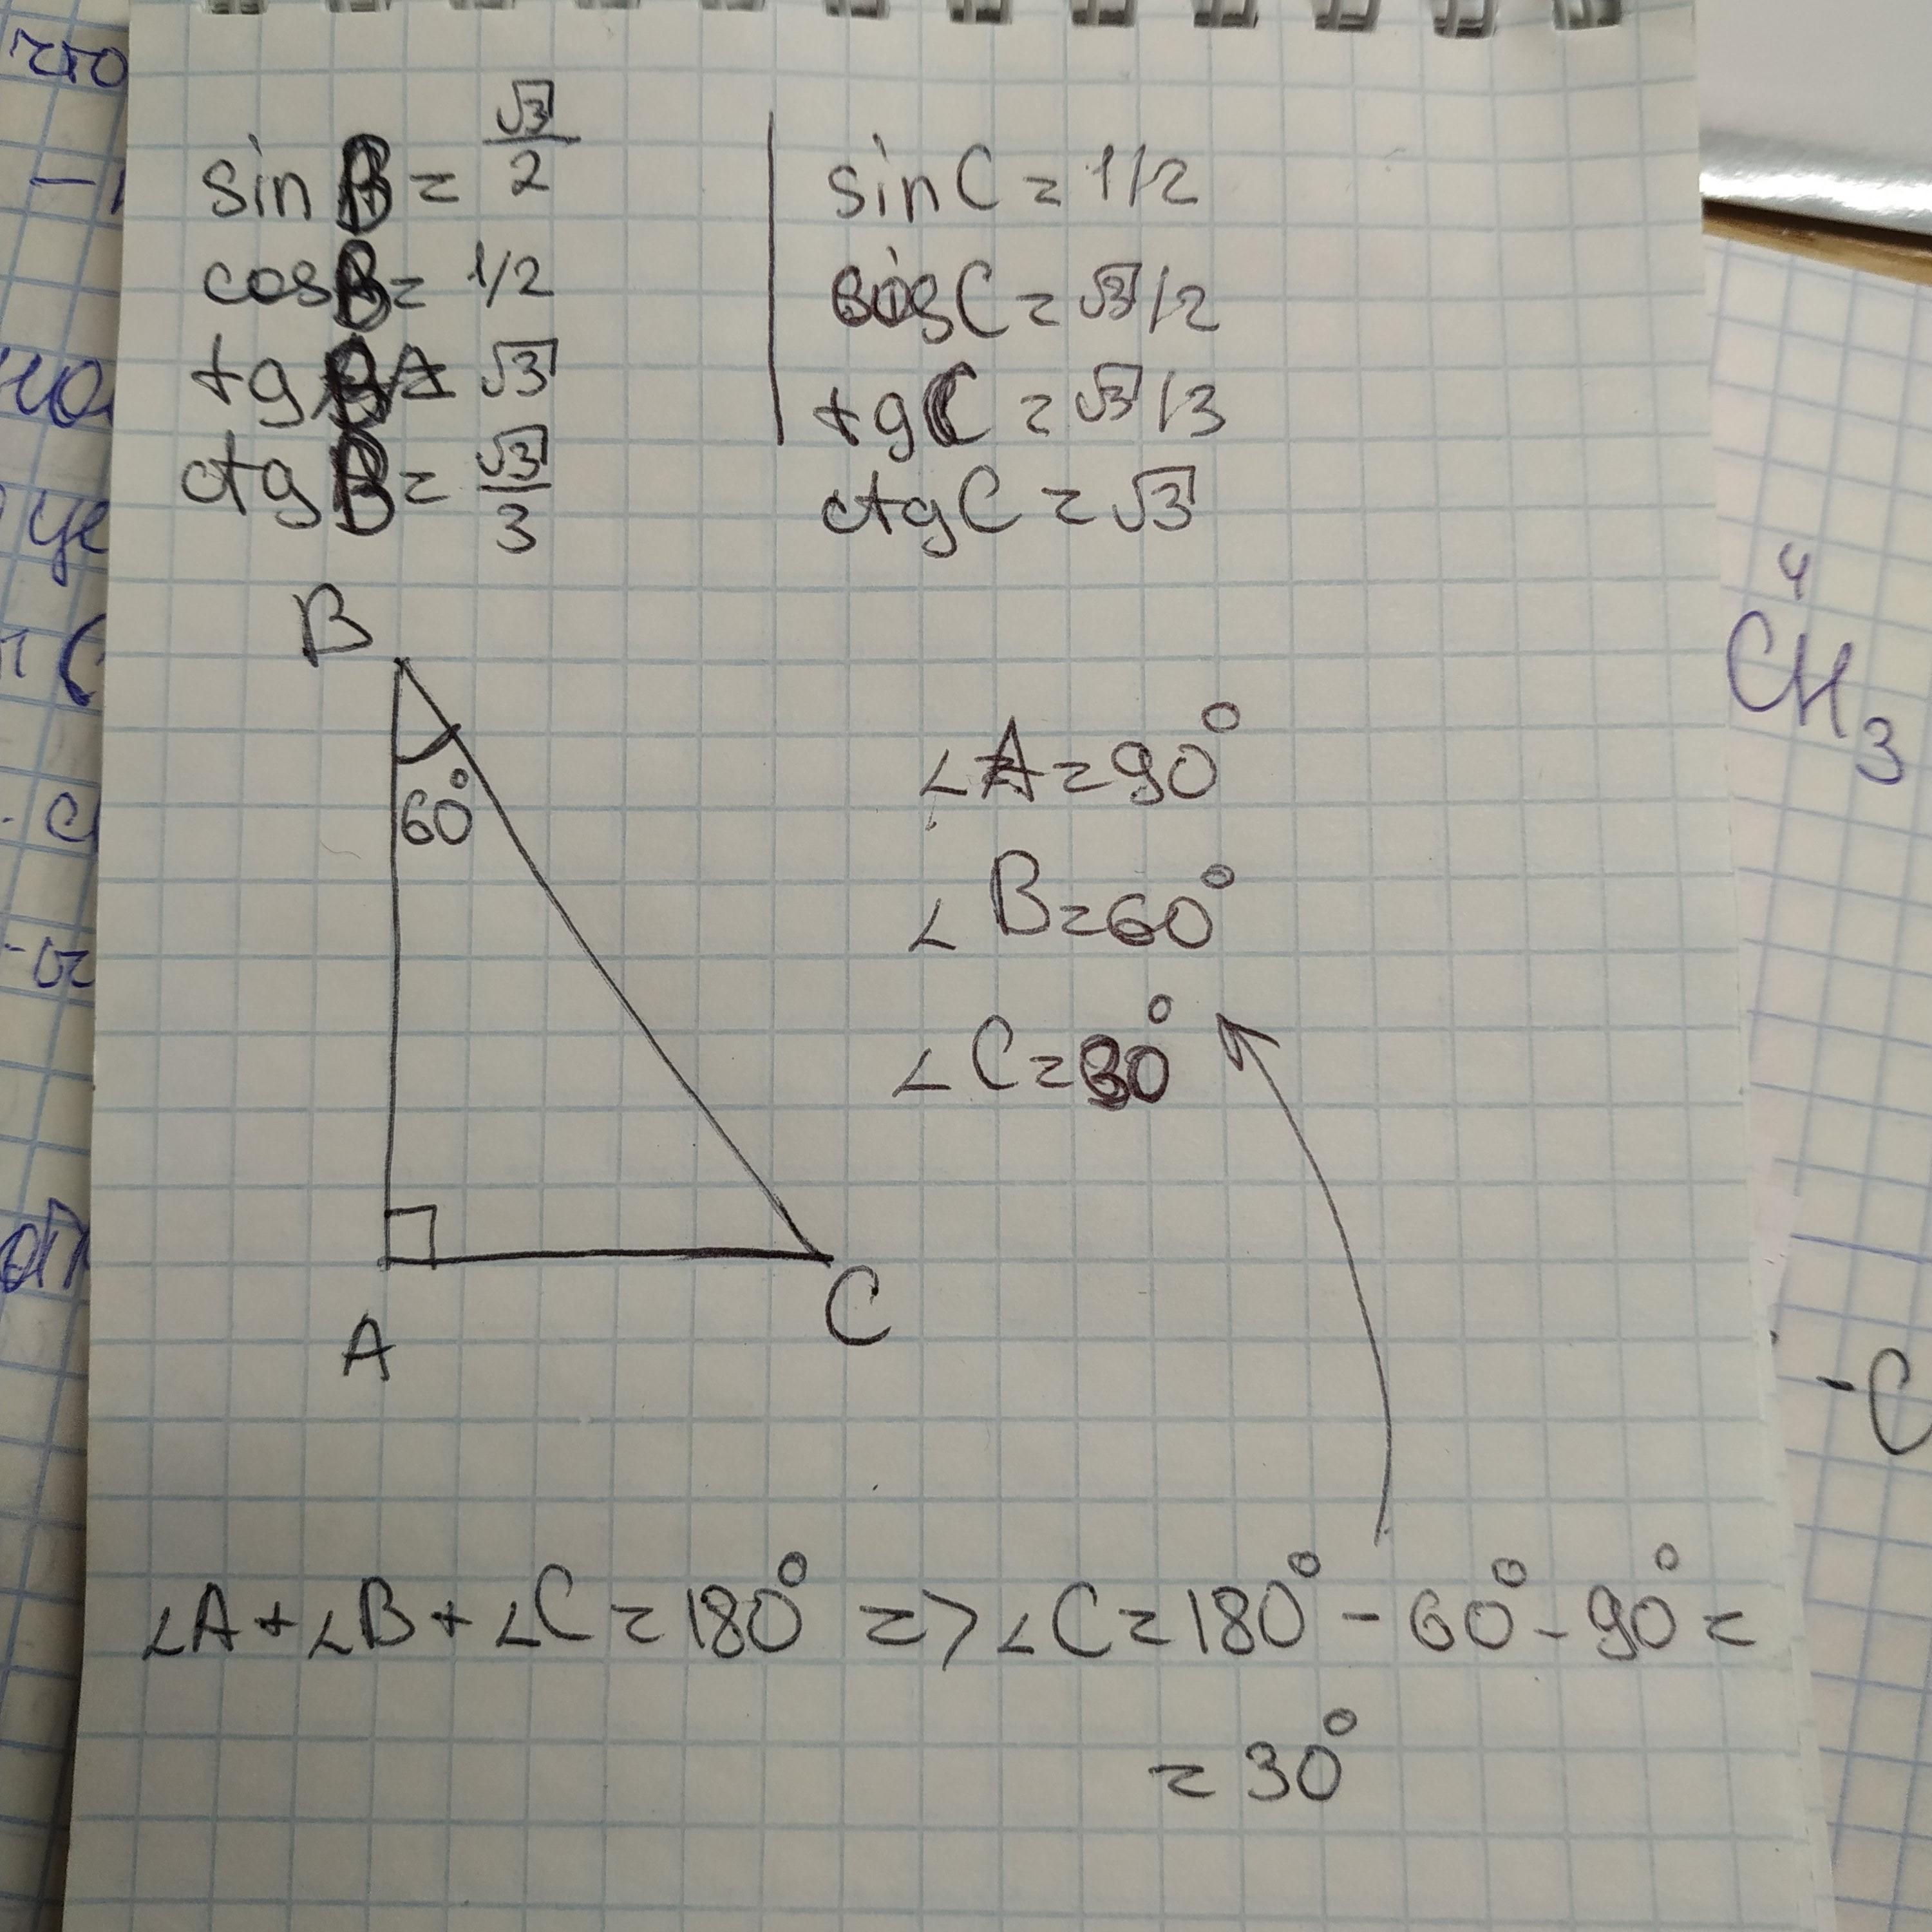 sin B = √3/2
cos B = 1/2
tg B = √3
ctg B = √3/3
sin C = 1/2
cos C = √3/2
tg C = √3/3
ctg C = √3
B
60°
A
C
∠A = 90°
∠B = 60°
∠C = 30°
∠A + ∠B + ∠C = 180° => ∠C = 180° - 60° - 90° =
= 30°
что
4
CH3
-C